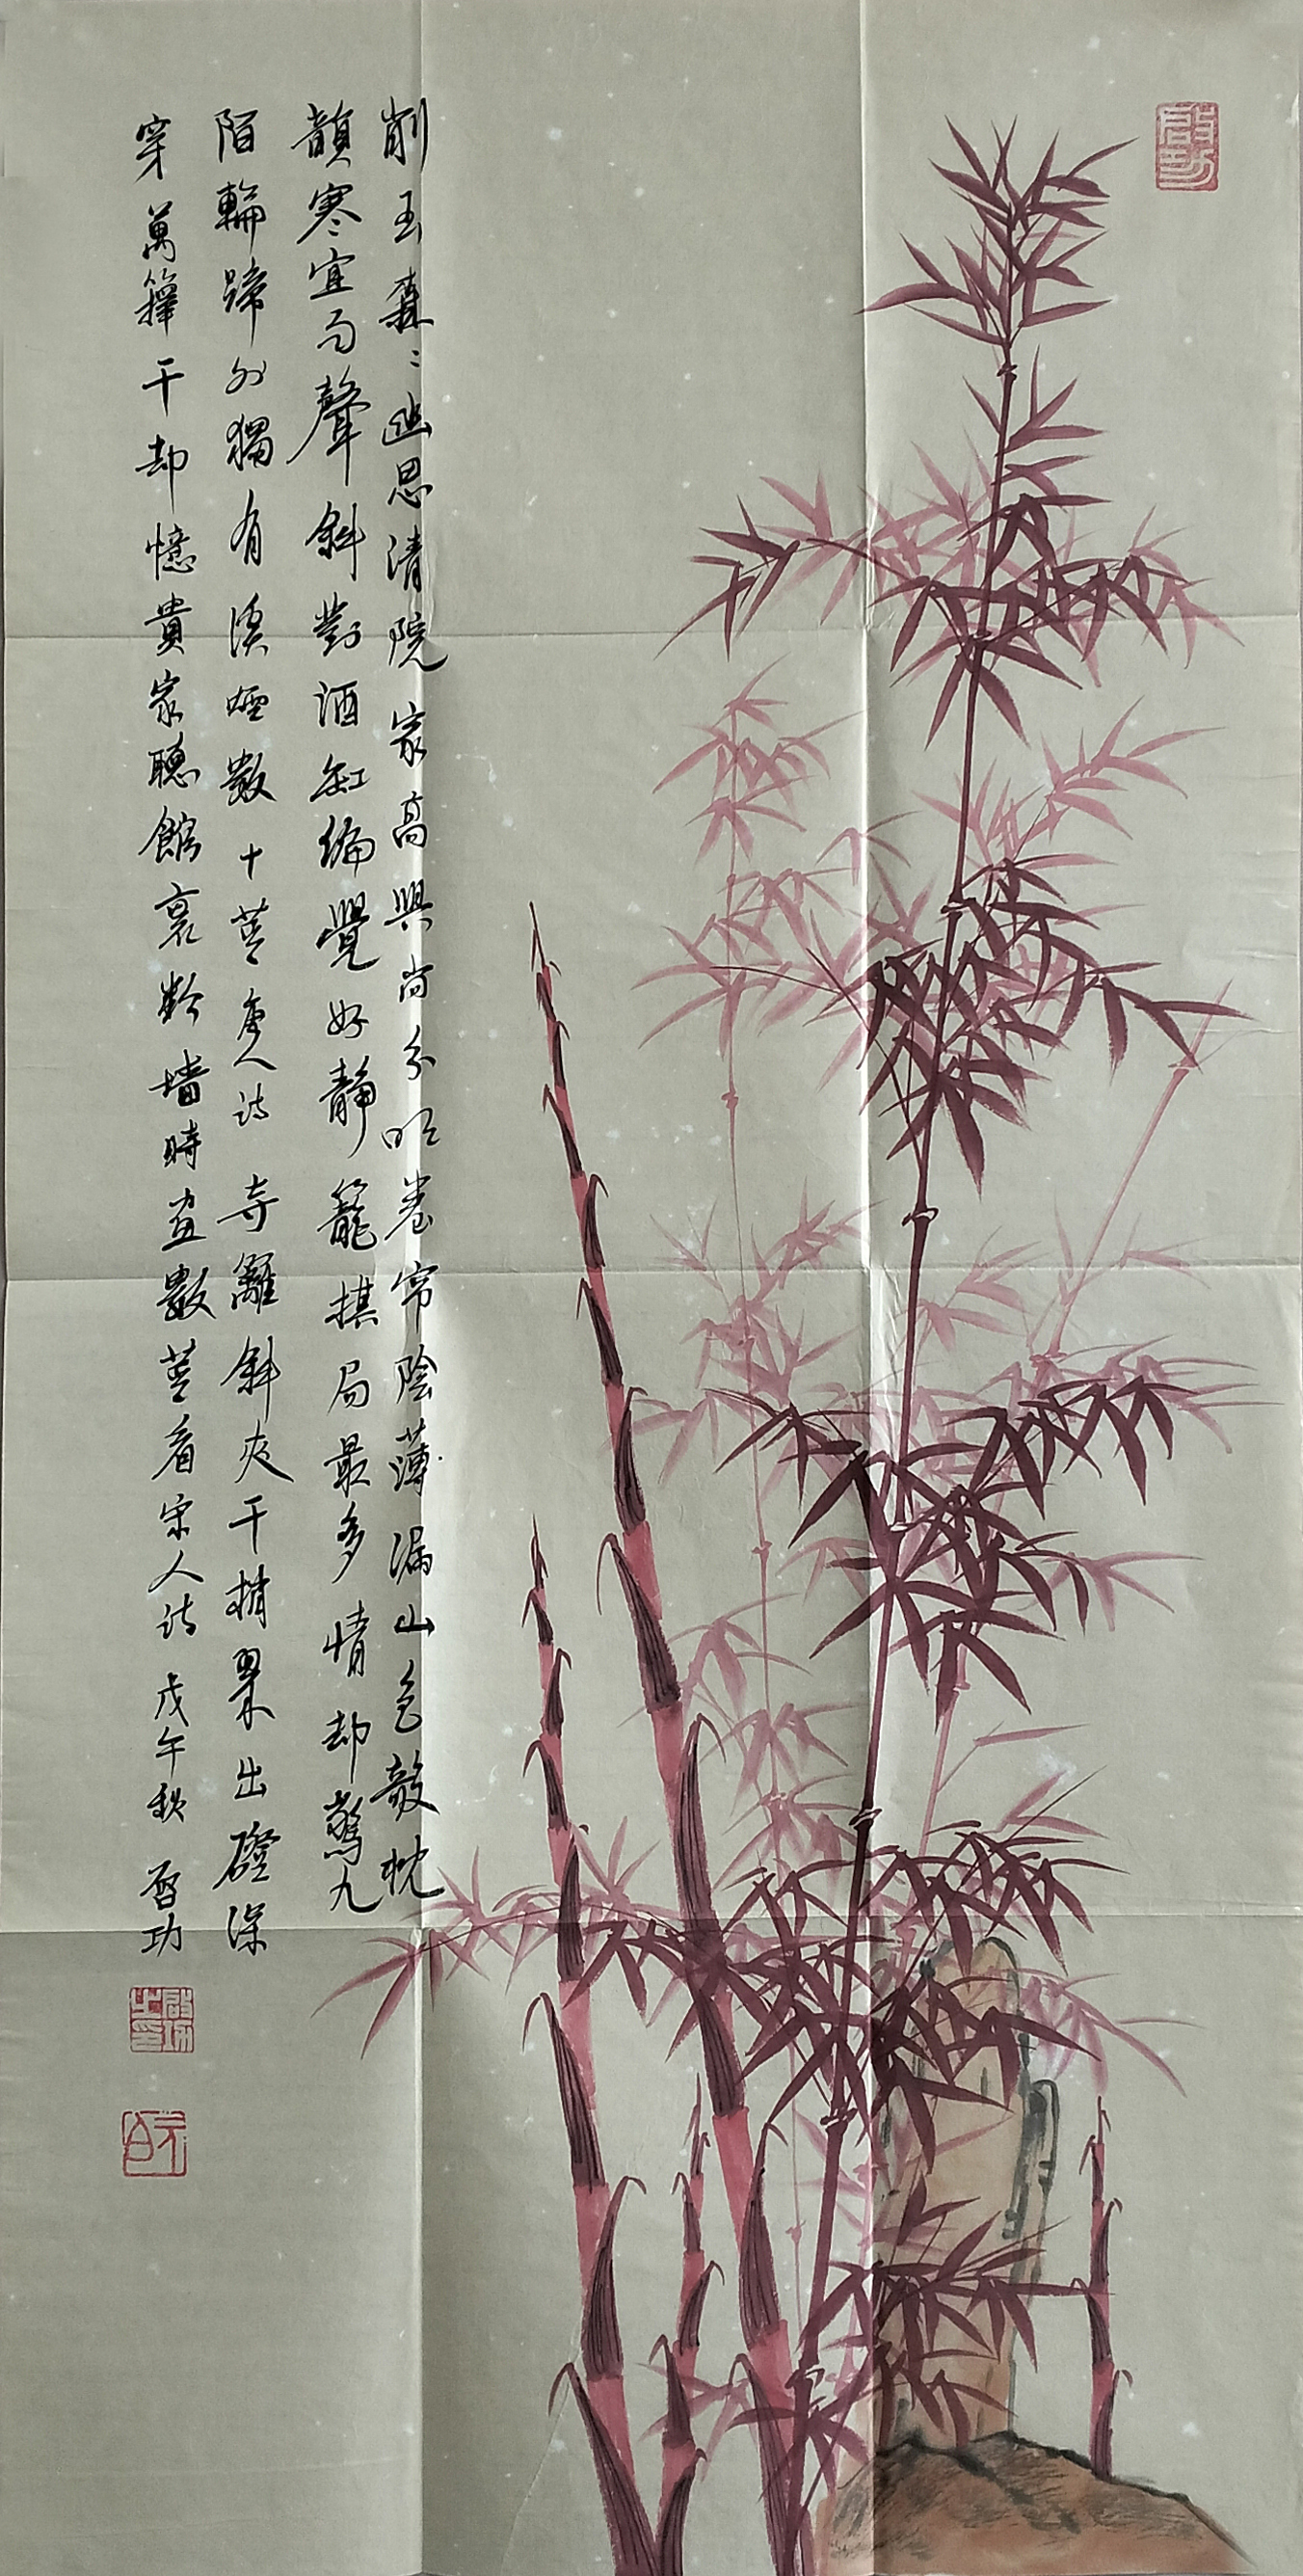 啟功
削玉森〻幽思清院家高興尚分明卷帘陰薄漏山色敲枕
韻寒宜雨聲斜對酒缸偏覺好靜籠棋局最多情却驚九
陌輪蹄外獨有溪煙數十莖唐人詩 寺籬斜夾千梢翠出磴深
穿萬籜干却憶貴家聽館裏粉墻時畫數莖看宋人詩 戊午秋 啓功
啟功之印
元白